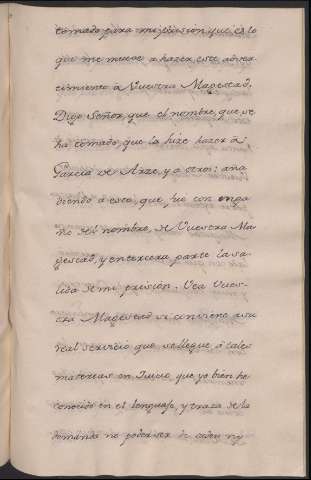 tomado para mi prission, que es lo
que me mueve a hazer este adver
timiento â Vuestra Magestad.
Digo Señor, que el nombre, que se
ha tomado, que la hize hazer â
Garcia de Arze, y a otros: aña
diendo â esto, que fue con enga
ño del nombre, de Vuestra Ma
gestad, y en tercera parte la sa-
lida de mi prission. Vea Vues-
tra Magestad si conviene a su
real servicio que se llegue â tales
materias en Juyzio, que yo bien he
conocido en el lenguage, y traza de la
demanda no poder ser de